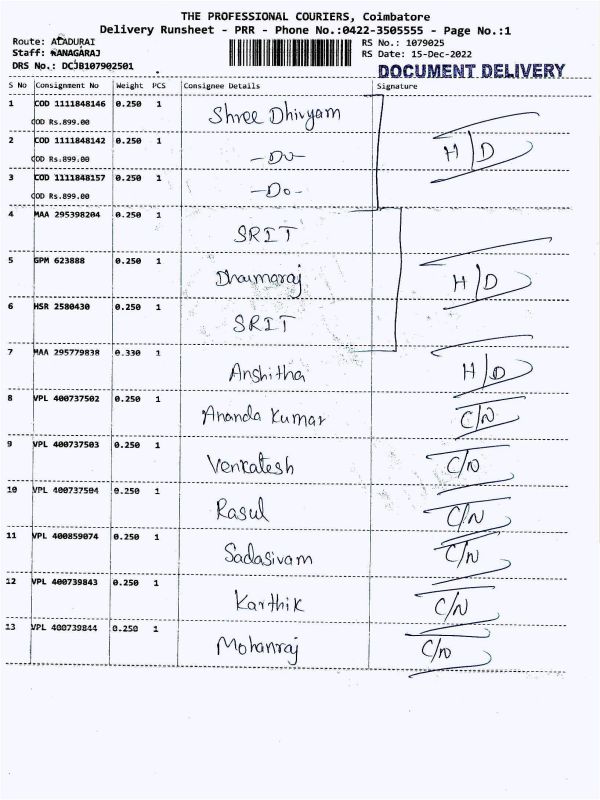 THE PROFESSIONAL COURIERS, Coimbatore
Delivery Runsheet - PRR - Phone No.:0422-3505555 - Page No.:1
Route: ALADURAI
Staff: KANAGARAJ
DRS No.: DCJB107902501
RS No.: 1079025
RS Date: 15-Dec-2022
DOCUMENT DELIVERY
S No Consignment No Weight PCS Consignee Details Signature
1 COD 1111848146 0.250 1 Shree Dhivyam
COD Rs.899.00
2 COD 1111848142 0.250 1 -Do- H/D
COD Rs.899.00
3 COD 1111848157 0.250 1 -Do-
COD Rs.899.00
4 MAA 295398204 0.250 1 SRIT
5 GPM 623888 0.250 1 Dharmaraj H/D
6 HSR 2580430 0.250 1 SRIT
7 MAA 295779838 0.330 1 Anshitha H/D
8 VPL 400737502 0.250 1 Ananda Kumar C/N
9 VPL 400737503 0.250 1 Venkatesh C/N
10 VPL 400737504 0.250 1 Rasul C/N
11 VPL 400859074 0.250 1 Sadasivam C/N
12 VPL 400739843 0.250 1 Karthik C/N
13 VPL 400739844 0.250 1 Mohanraj C/N